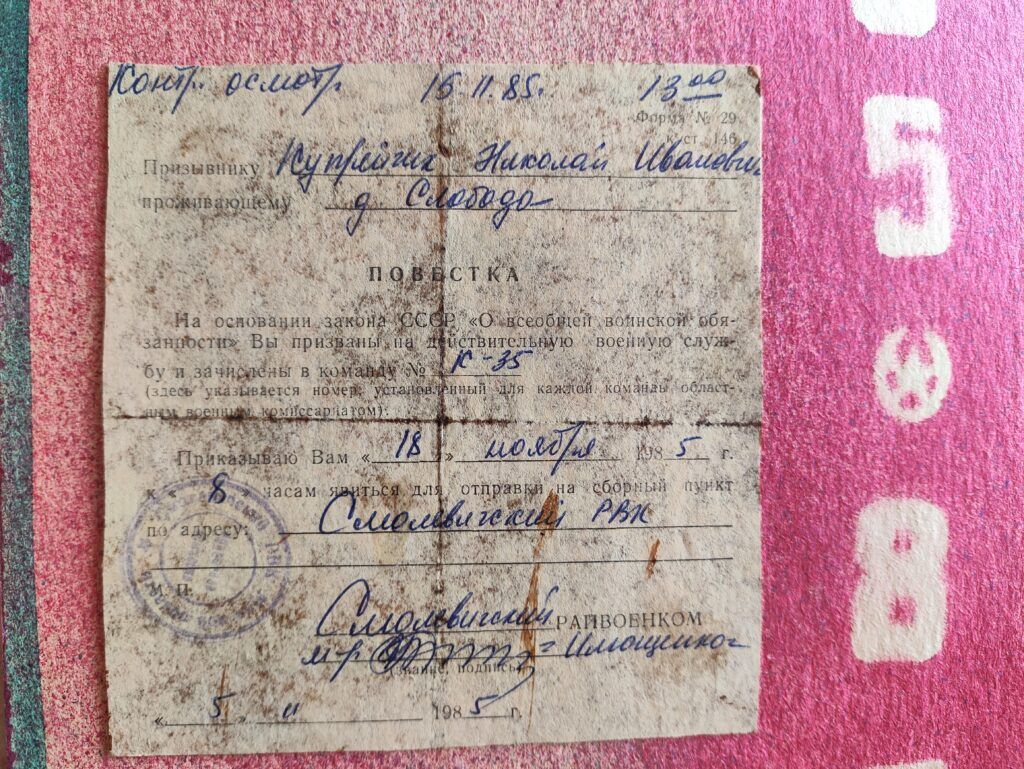 Контр. осмотр. 15.11.85г. 13 00
Форма № 29
ст. 146
Призывнику Купрейчик Николай Иванович
проживающему д Слобода
ПОВЕСТКА
На основании закона СССР «О всеобщей воинской обя-
занности» Вы призваны на действительную военную служ-
бу и зачислены в команду № К-35
(здесь указывается номер, установленный для каждой команды област-
ным военным комиссариатом).
Приказываю Вам « 18 » ноября 1985 г.
к « 8 » часам явиться для отправки на сборный пункт
по адресу: Смолевичский РВК
М. П.
Смолевичский РАЙВОЕНКОМ
м-р
(звание, подпись)
« 5 » 11 1985 г.
5
8